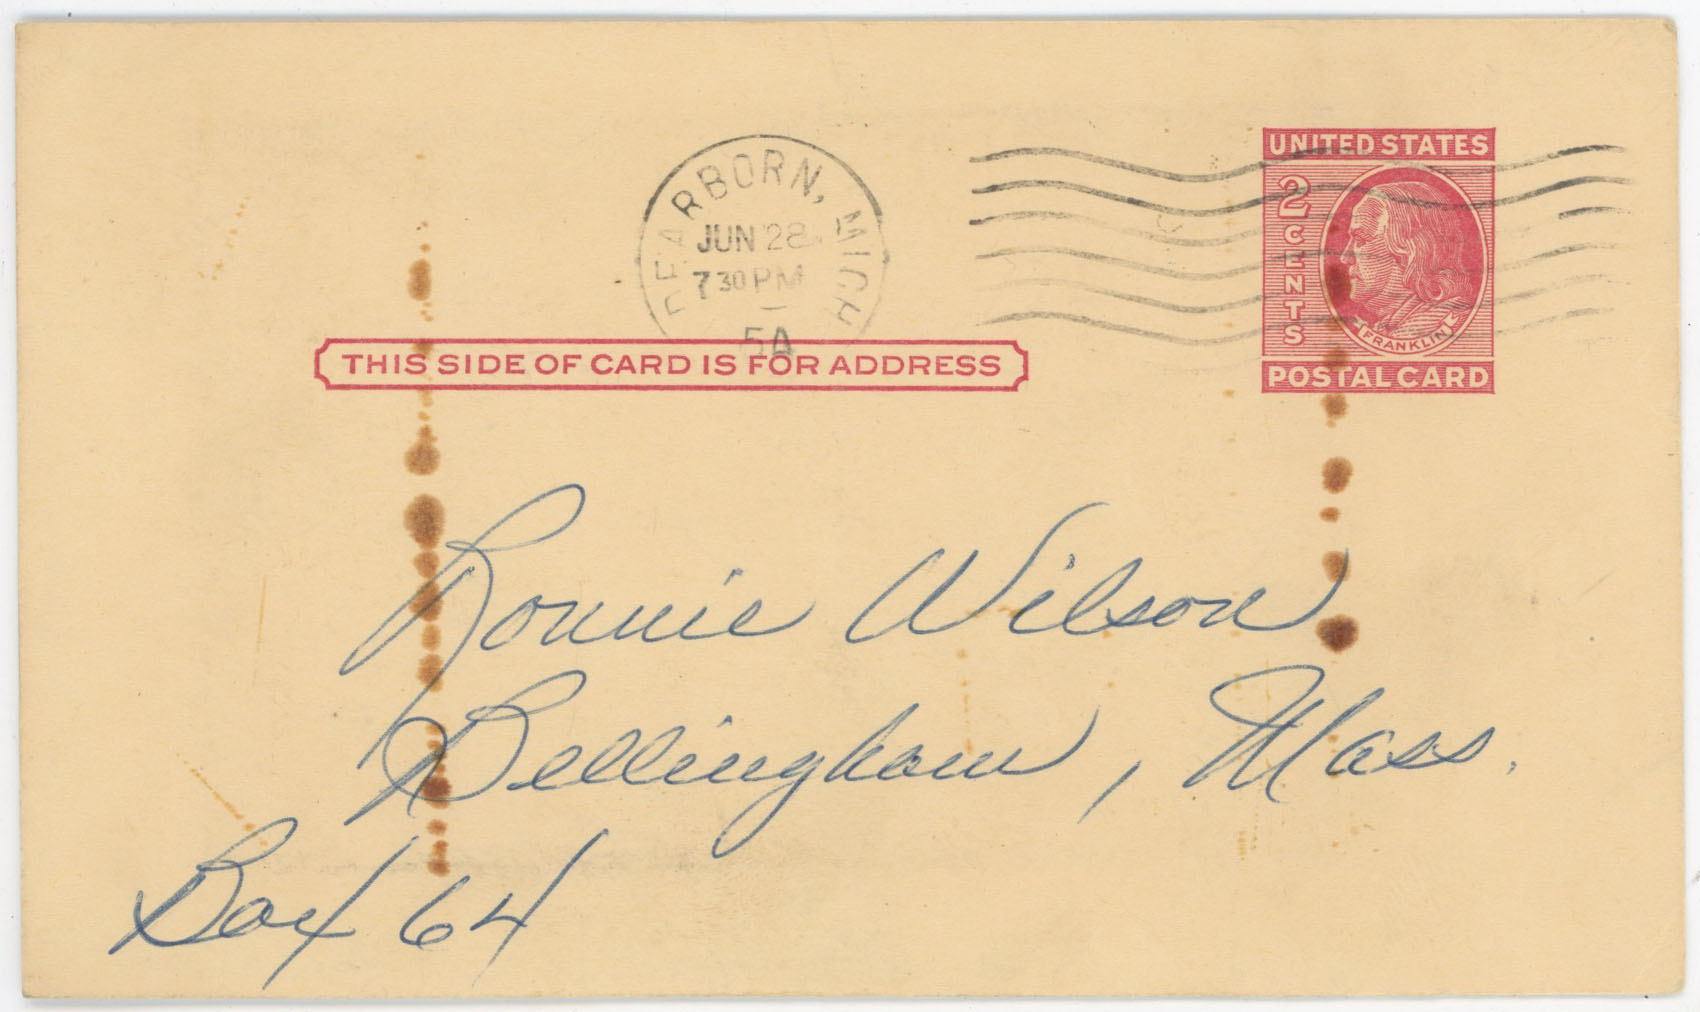 DEARBORN, MICH
JUN 28
7 30 PM
UNITED STATES
2 CENTS
FRANKLIN
POSTAL CARD
THIS SIDE OF CARD IS FOR ADDRESS
Ronnie Wilson
Bellingham, Mass.
Box 64